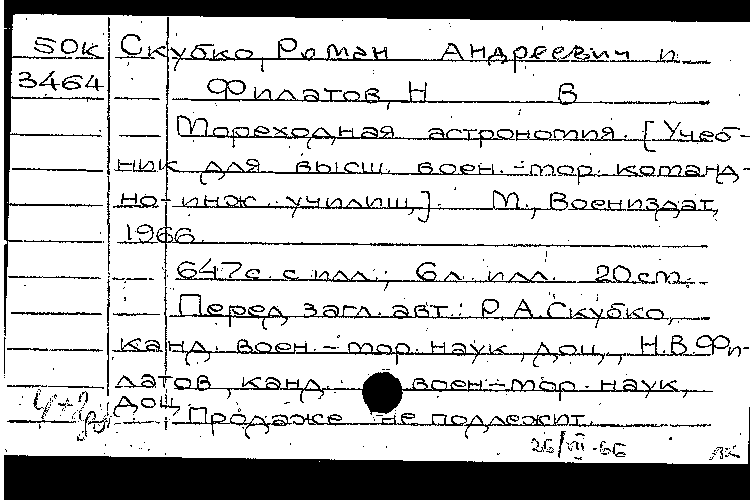 50к Скубко, Роман Андреевич и
3464 Филатов, Н В
Мореходная астрономия. [Учеб-
ник для высш. воен.-мор. команд-
но-инж. училищ]. М., Воениздат,
1966.
647с. с илл.; 6л. илл. 20см.
Перед загл. авт.: Р.А.Скубко,
канд. воен.-мор. наук, доц., Н.В.Фи-
латов, канд. воен-мор. наук,
доц.
Продаже не подлежит.
26/VII-66